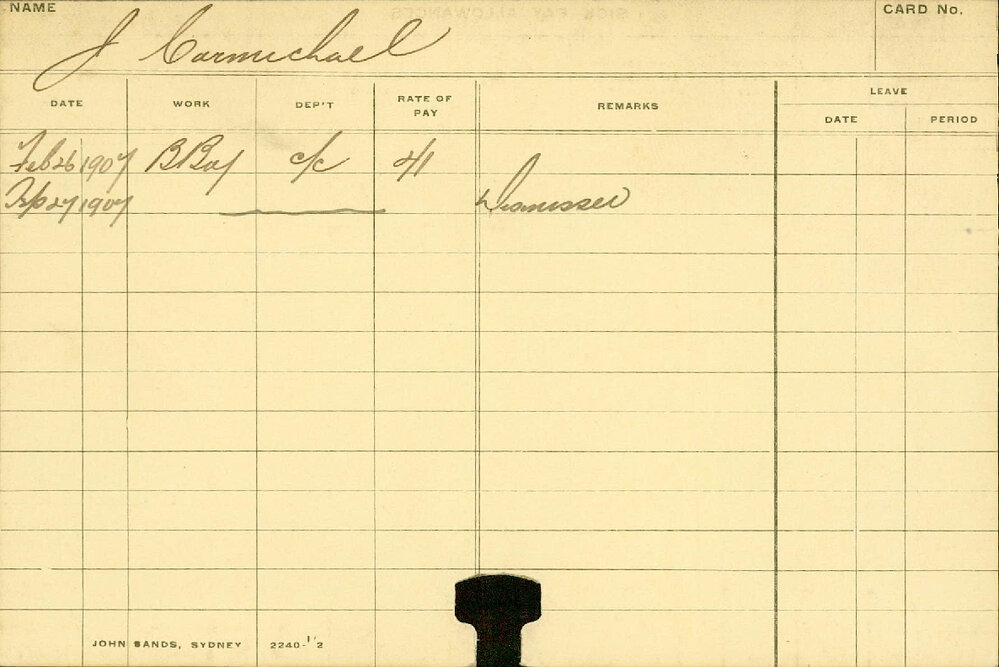 NAME
CARD No.
J Carmichael
DATE WORK DEP'T RATE OF PAY REMARKS LEAVE
DATE PERIOD
Feb 26 1907 B Boy c/c 4/1
27 1907 Dismissed
JOHN SANDS, SYDNEY 2240-